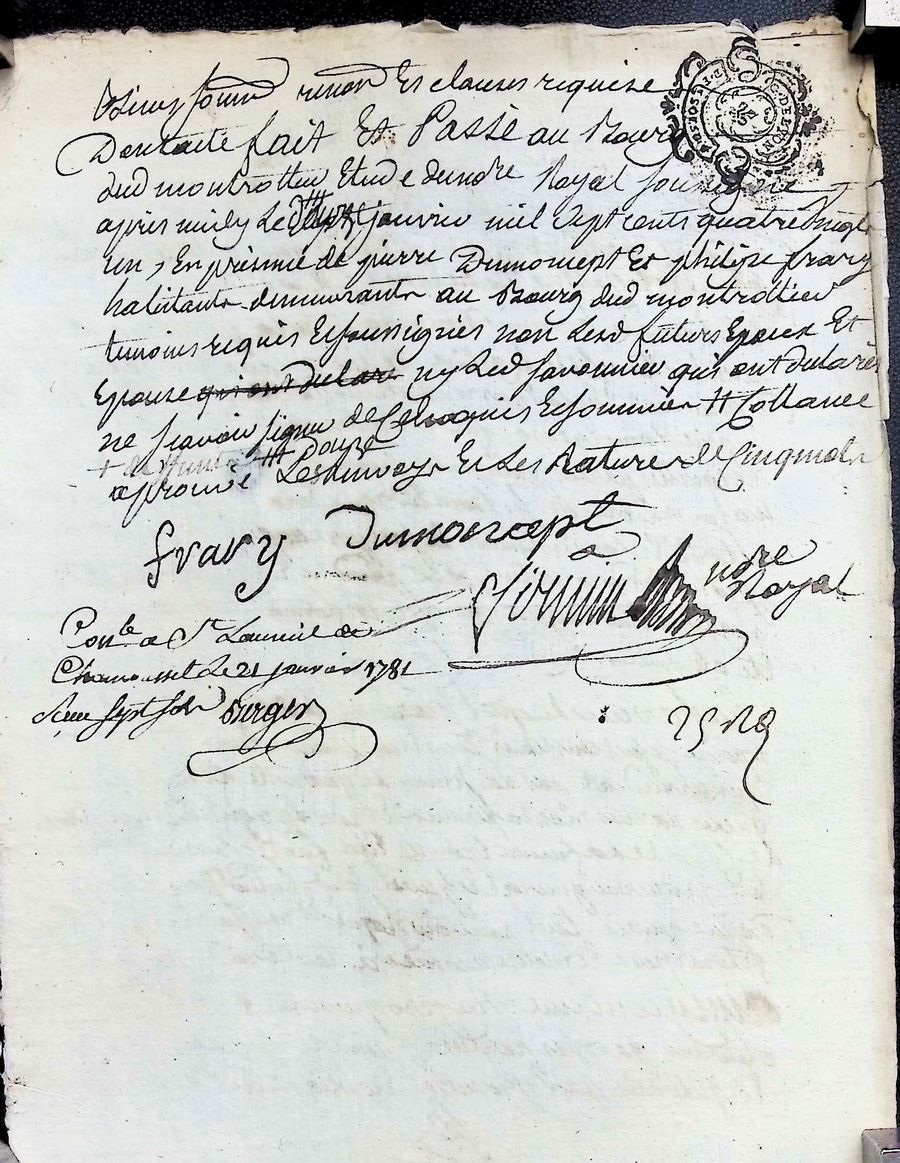 soum renon Et clauses requise
Dont acte fait Et Passé au Bourg
dud montrottier Etude du nore Royal soussigné
apres midy Le Douze janvier mil sept cents quatre vingt
un, En présence de pierre Dumoncept Et philipe frary
habitants demeurants au Bourg dud montrottier
temoins requis Et soussignés non Lesd futurs Epoux Et
Epouse qui ont declare ny Led savonnier qui ont declarés
ne scavoir signer de Ce Enquis Et sommés
# douze
aprouvé Les Renvoys Et Les Rature de Cinq mots
frary Dumoncept
nore
Royal
Conlé a St Laurent de
Chamousset Le 21 janvier 1781
Reçu sept sols Berger
25
G. DE LYON